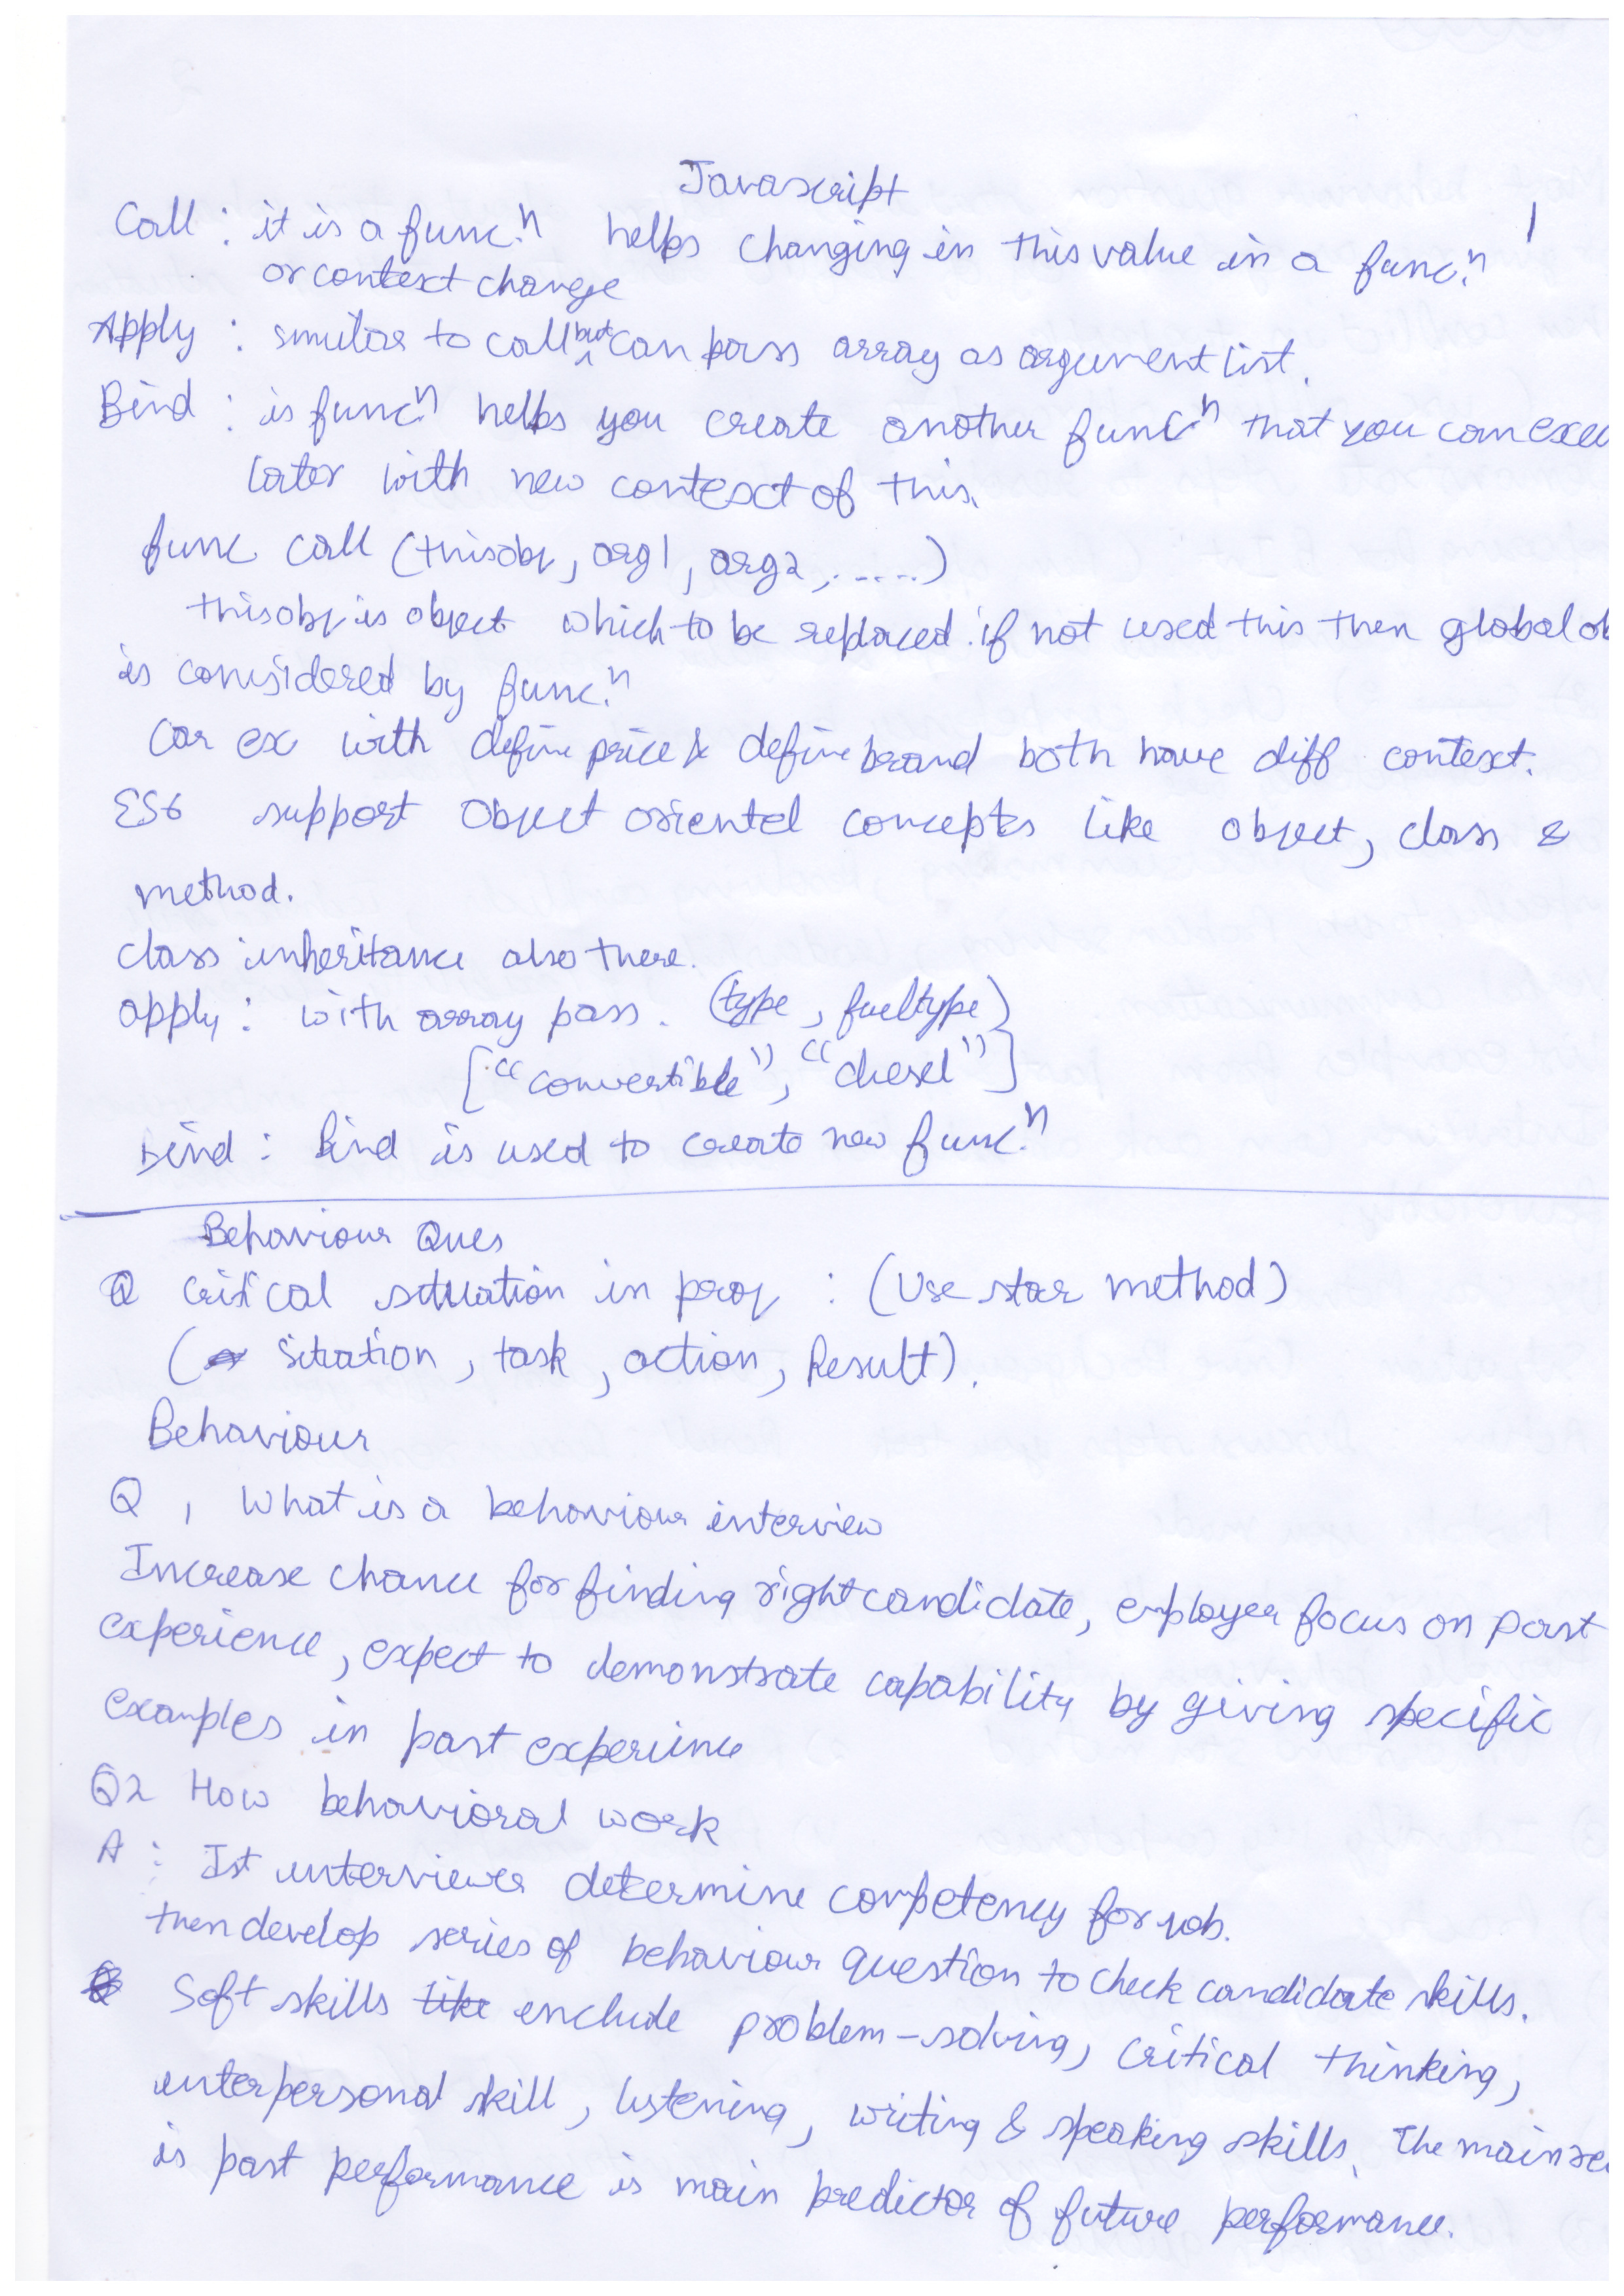 Javascript
1
Call : it is a func.n helps changing in this value in a func.n
or context change
Apply : similar to call but can pass array as argument list.
Bind : is func.n helps you create another func.n that you can exec
later with new context of this.
func call (thisobj, arg1, arg2, .....)
thisobj is object which to be replaced. if not used this then global ob
is considered by func.n
Car ex with define price & define brand both have diff context.
ES6 support Object oriented concepts like object, class &
method.
class inheritance also there.
apply : with array pass. (type, fueltype)
["convertible", "diesel"]
bind : Bind is used to create new func.n
Behaviour Ques
Q critical situation in proj : (Use star method)
(Sitration, task, action, Result).
Behaviour
Q 1 What is a behaviour interview
Increase chance for finding right candidate, employer focus on past
experience, expect to demonstrate capability by giving specific
examples in past experience
Q2 How behavioral work
A : Ist interviewer determine competency for job.
then develop series of behaviour question to check candidate skills.
Soft skills like enclude problem-solving, critical thinking,
interpersonal skill, listening, writing & speaking skills. The main re
is past performance is main predictor of future performance.